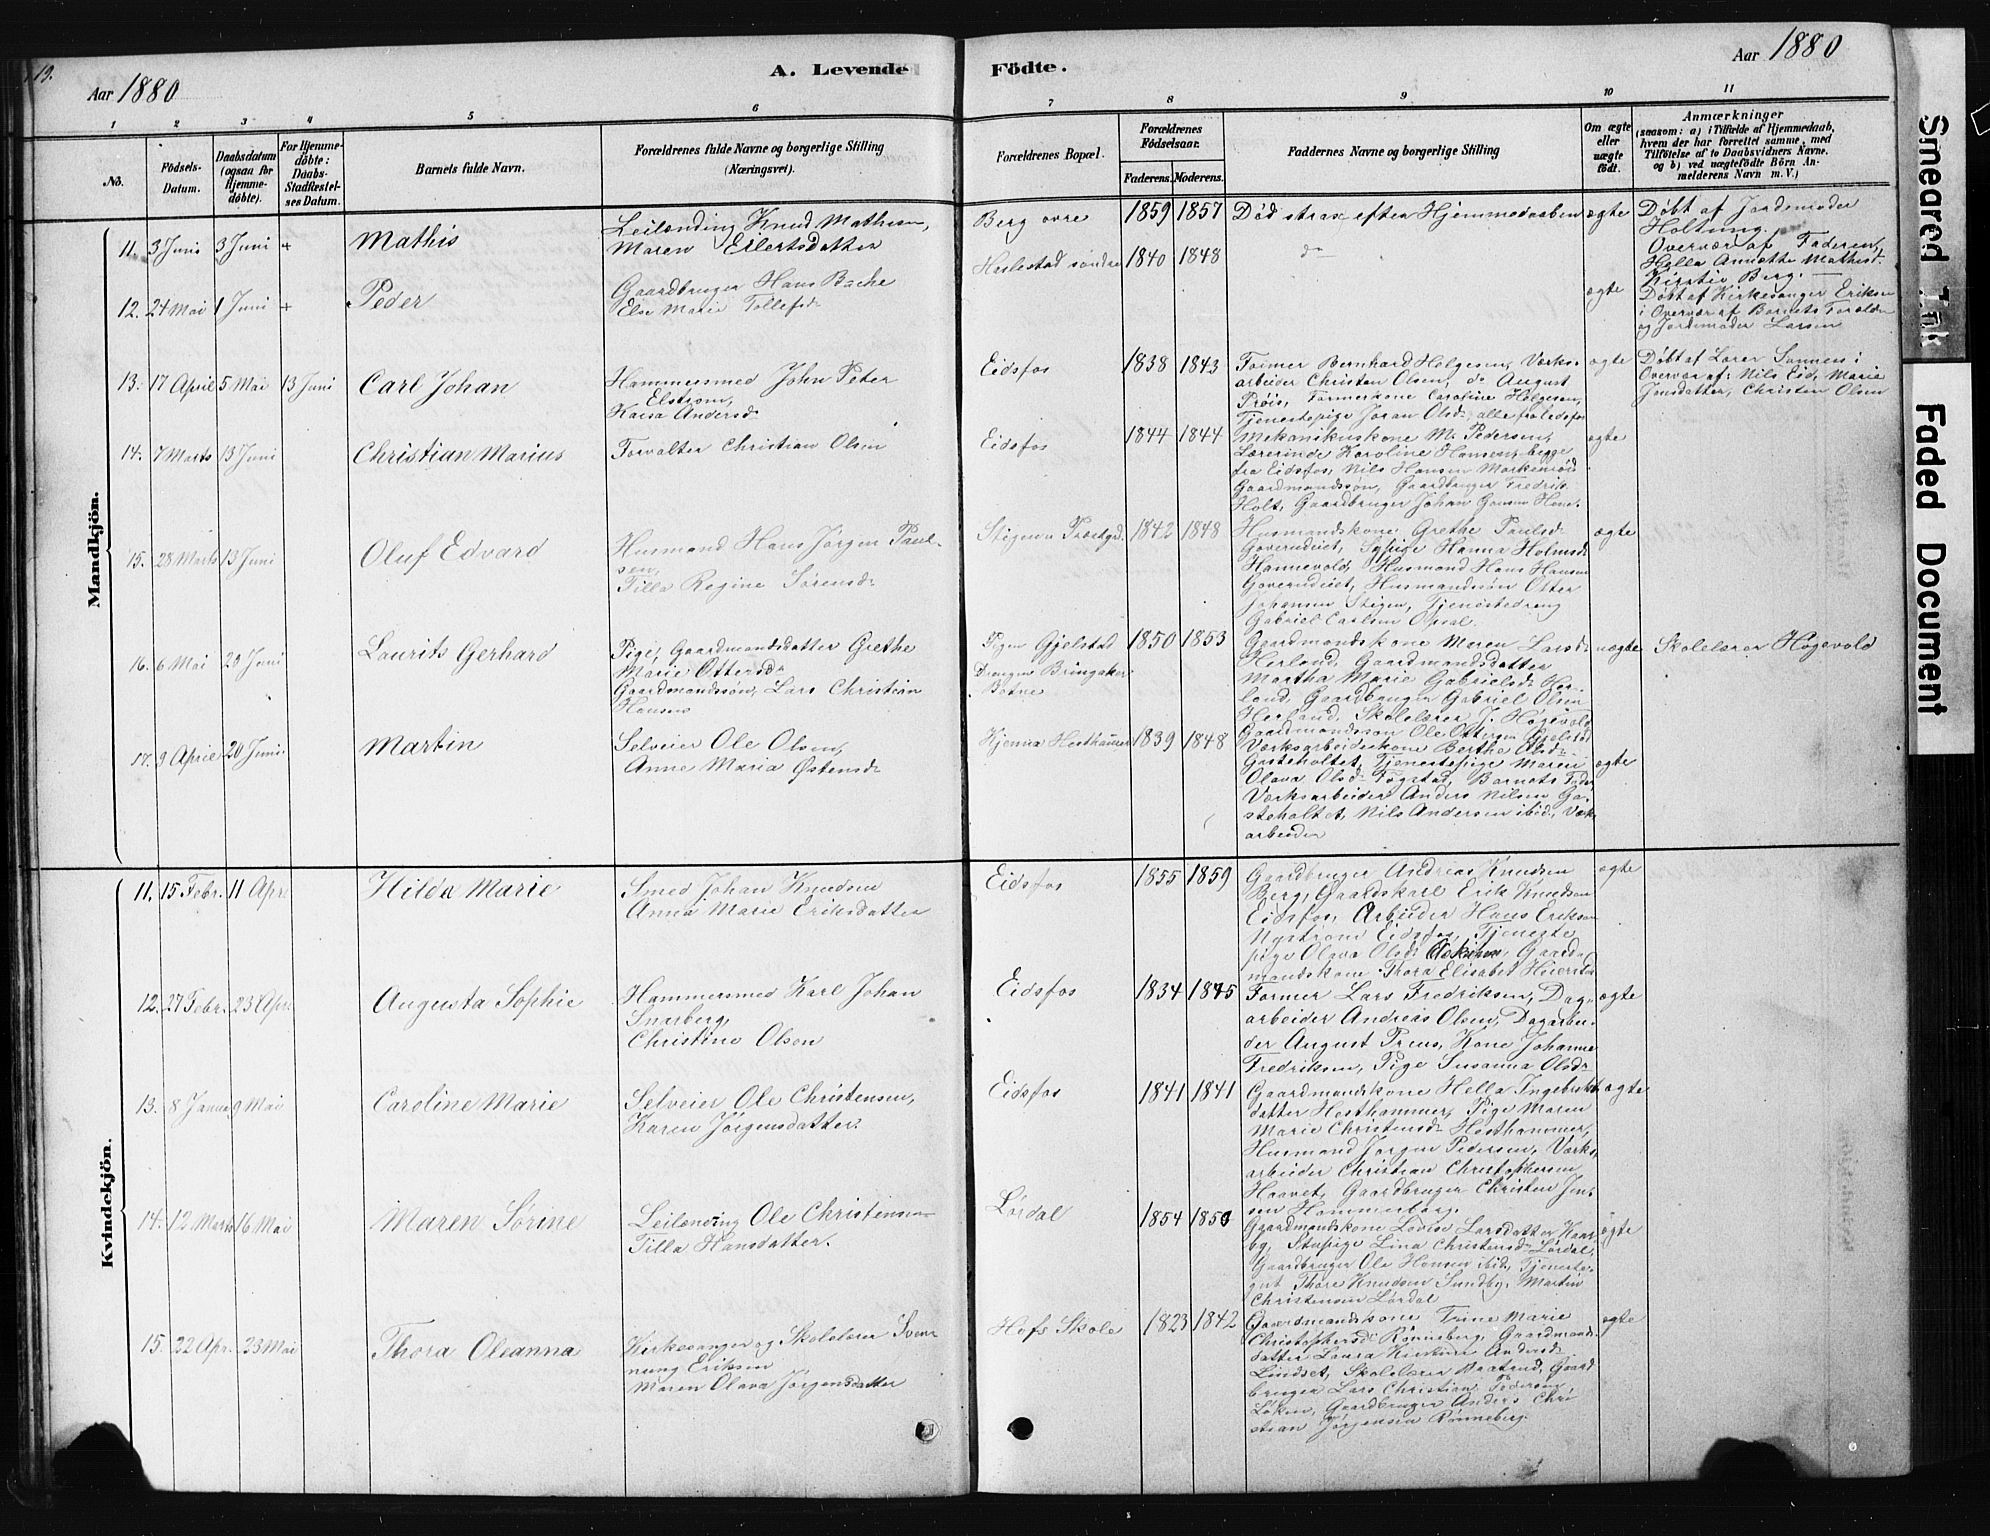 19.
Aar 1880
A. Levende
Födte.
Aar 1880
1 2 3 4 5 6 7 8 9 10 11
No.
Födsels-Datum.
Daabsdatum (ogsaa for Hjemmedöbte).
For Hjemmedöbte: Daabs-Stadfæstelses Datum.
Barnets fulde Navn.
Forældrenes fulde Navne og borgerlige Stilling (Næringsvei).
Forældrenes Bopæl.
Forældrenes Födselsaar.
Faderens. Moderens.
Faddernes Navne og borgerlige Stilling
Om ægte eller uægte födt.
Anmærkninger
(saasom: a) i Tilfælde af Hjemmedaab, hvem der har forrettet samme, med Tilföielse af to Daabsvidners Navne, og b) ved uægtefödte Börn Anmelderens Navn m. V.)
Mandkjön.
11. 3 Juni 3 Juni + Mathis
Leilænding Knud Mathisen,
Maren Eilertsdatter
Berg øvre 1859 1857 Död strax efter Hjemmedaaben ægte
Döbt af Jordemoder
Holtung.
Overvær af Faderen,
Hella Annette Mathisd.
Kirstie Berg.
12. 24 Mai 1 Juni + Peder
Gaardbruger Hans Bache
Else Marie Tollefsd.
Haslestad söndre 1840 1848 do ægte
Döbt af Kirkesanger Eriksen
i Overvær af Barnets Forældre
og Jordemoder Larsen
13. 17 April 5 Mai 13 Juni Carl Johan
Hammersmed John Peter
Elstrøm,
Kaisa Andersd.
Eidsfos 1838 1843
Former Bernhard Helgesen, Værks-
arbeider Christen Olsen, do August
Pröis, Formerkone Caroline Helgesen,
Tjenestepige Joran Olsd. alle fra Eidsfos
ægte
Döbt af Lærer Sannes i
Overvær af: Nils Eid, Marie
Jensdatter, Christen Olsen
14. 7 Marts 13 Juni Christian Marius
Forvalter Christian Olsen
Eidsfos 1844 1844
Mekanikuskone M. Pedersen,
Lærerinde Karoline Hansen, begge
fra Eidsfos, Nils Hansen
Gaardmandssøn, Gaardbruger Fredrik
Holt, Gaardbruger Johan
ægte
15. 28 Marts 13 Juni Oluf Edvard
Husmand Hans Jørgen Paul-
sen,
Tilla Regine Sørensd.
Stigen u. Præstgd. 1842 1848
Husmandskone Grethe Paulsd.
Goverudeiet, Sypige Hanna Holmsd.
Hannevold, Husmand Hans Hansen
Goverudeiet, Husmandssøn Otter
Johansen Stigen, Tjenestedreng
Gabriel Carlsen Opsal.
ægte
16. 6 Mai 20 Juni Laurits Gerhard
Pige, Gaardmandsdatter Grethe
Marie Ottersd.
Gaardmandssøn, Lars Christian
Hansen
Pigen Gjelstad
Drengen Bringaker
Botne
1850 1853
Gaardmandskone Maren Larsd.
Herland, Gaardmandsdatter
Martha Marie Gabrielsd. Her-
land, Gaardbruger Gabriel Olsen
Herland, Skolelærer J. Høgevold
Gaardmandssøn Ole Ottersen Gjelstad
uægte Skolelærer Høgevold
17. 9 April 20 Juni. Martin
Selveier Ole Olsen,
Anne Maria Østensd.
Hjemna Hesthammer 1839 1848
Værksarbeiderkone Berthe Olsd.
Gasteholtet, Tjenestepige Maren
Olava Olsd. Fogstad, Barnets Fader
Værksarbeider Anders Nilsen Ga-
steholtet, Nils Andersen ibid, Værks-
arbeider
ægte
Kvindekjön.
11. 15 Febr. 11 Apr. Hilda Marie
Smed Johan Knudsen
Anna Marie Eriksdatter
Eidsfos 1855 1859
Gaardbruger Andreas Knudsen
Berg, Gaardskarl Erik Knudsen
Eidsfos, Arbeider Hans Eriksen
Nystrøm Eidsfos, Tjeneste-
pige Olava Olsd. Askjem, Gaard-
mandskone Thora Elisabet
ægte
12. 27 Febr. 23 Apr. Augusta Sophie
Hammersmed Karl Johan
Snarberg,
Christine Olsen
Eidsfos 1834 1845
Former Lars Fredriksen, Dag-
arbeider Andreas Olsen, Dagarbei-
der August Preus, Kone Johanne
Fredriksen, Pige Susanna Olsd.
ægte
13. 8 Janua 9 Mai Caroline Marie
Selveier Ole Christensen,
Karen Jørgensdatter.
Eidsfos 1841 1841
Gaardmandskone Hella Ingebrikt-
datter Hesthammer, Pige Maren
Marie Christensd. Hesthammer,
Husmand Jørgen Pedersen, Værks-
arbeider Christian Christophersen
Haavet, Gaardbruger Christen Jen-
sen Hammerborg.
ægte
14. 12 Marts 16 Mai Maren Sørine
Leilænding Ole Christensen
Tilla Hansdatter.
Lørdal 1854 1850
Gaardmandskone Lovise Larsdatter Haar-
by, Stuepige Lina Christensd. Lørdal,
Gaardbruger Ole Hansen ibid, Tjeneste-
gut Thore Knudsen Sundby, Martin
Christensen Lørdal
ægte
15. 22 Apr. 23 Mai Thora Oleanna
Kirkesanger og Skolelærer Sven-
nung Eriksen
Maren Olava Jørgensdatter
Hofs Skole 1823 1842
Gaardmandskone Trine Marie
Christophersd. Rønneberg, Gaardmands-
datter Laura Kirstine Andersd.
Lindset, Skolelærer Aaatrud, Gaard-
bruger Lars Christian Pedersen
Løken, Gaardbruger Anders Chri-
stian Jørgensen Rønneberg.
ægte
Smeared Ink
Faded Document